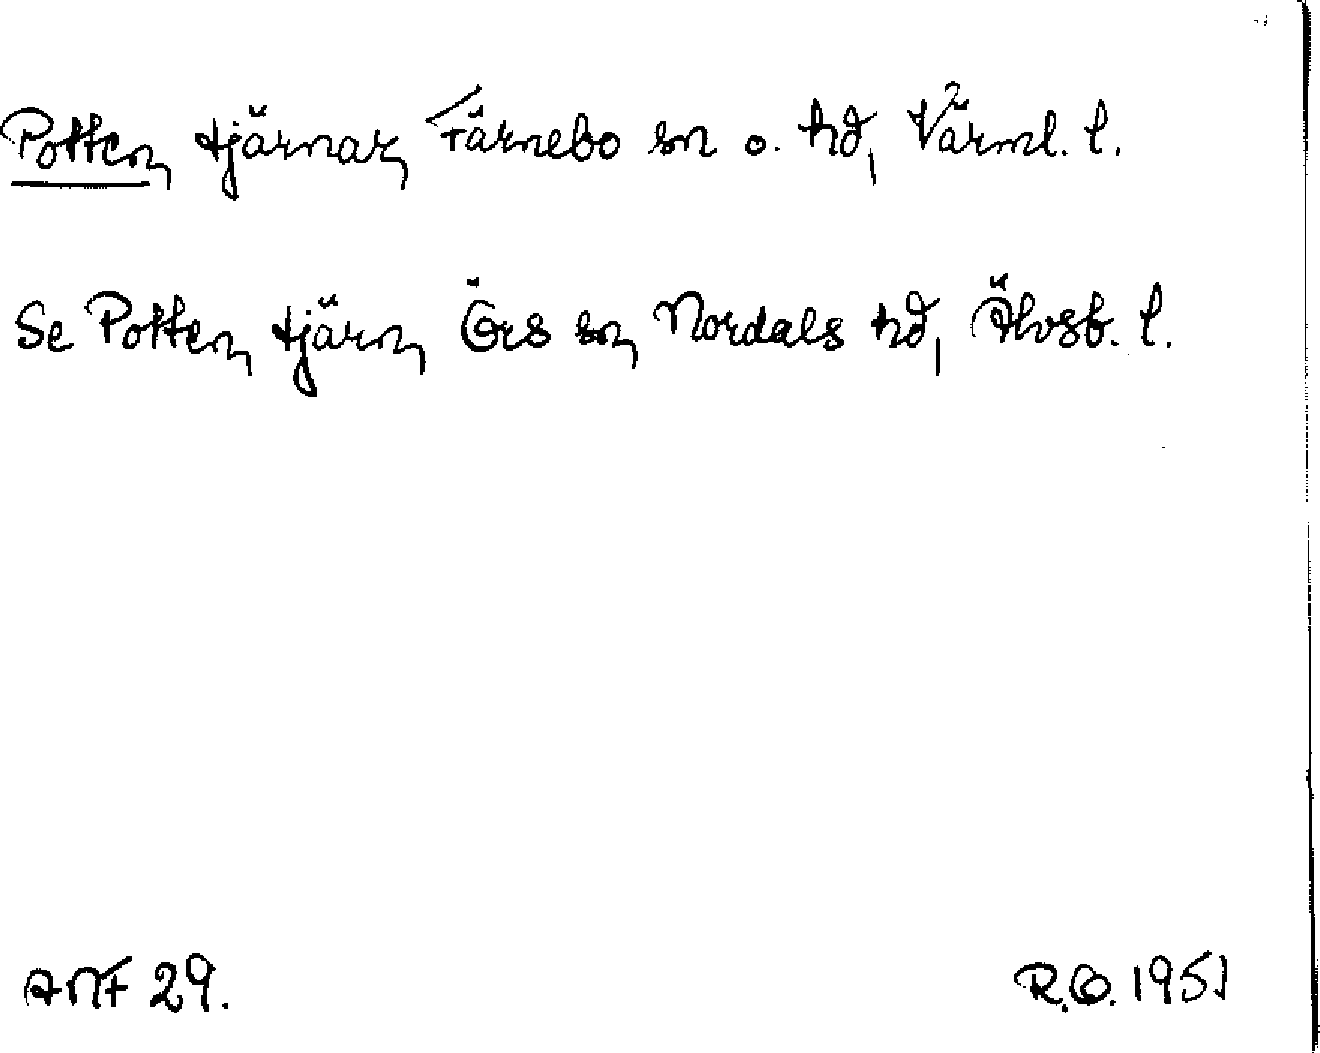 Potten, tjärnar, Färnebo sn o. hd, Värml. l.
Se Potten, tjärn, Örs sn, Nordals hd, Älvsb. l.
ANF 29.
R.O. 1951